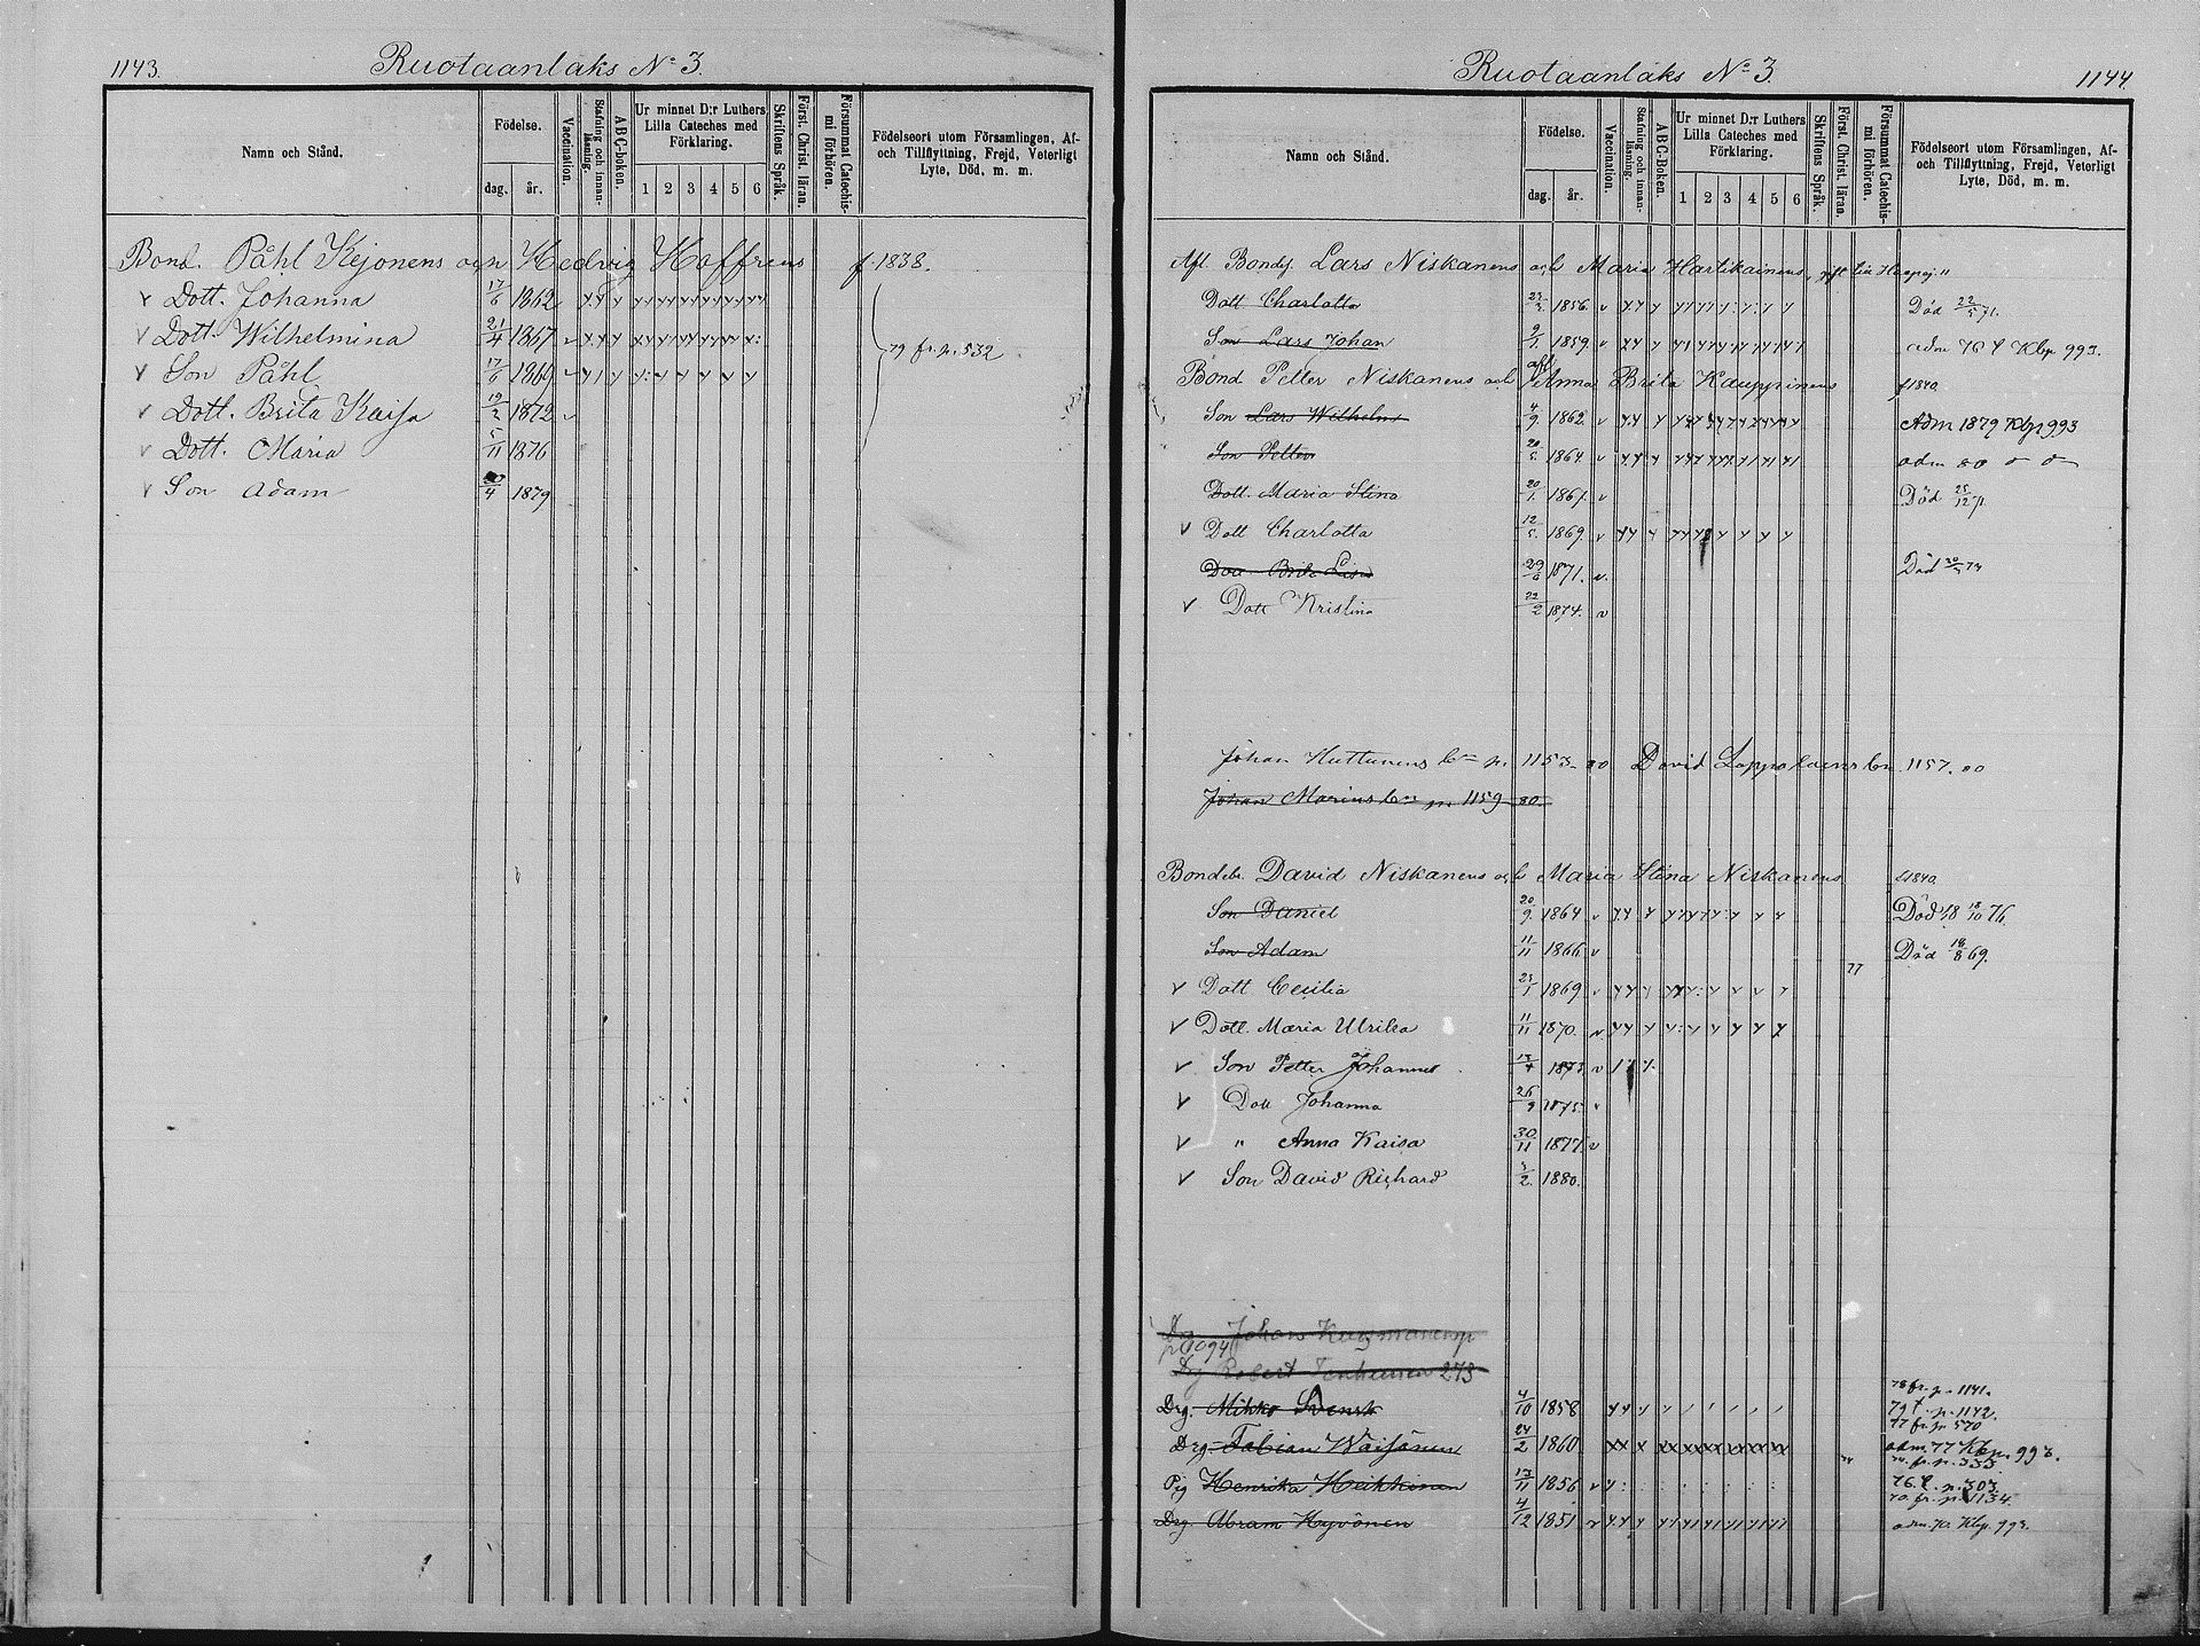 1143.
Ruotaanlaks No 3.
Namn och Stånd.
Födelse.
dag.
år.
Vaccination.
Stafning och innan-läsning.
ABC-boken.
Ur minnet D:r Luthers Lilla Cateches med Förklaring.
1 2 3 4 5 6
Skriftens Språk.
Först. Christ. läran.
Försummat Catechis-mi förhören.
Födelseort utom Församlingen, Af- och Tillflyttning, Frejd, Veterligt Lyte, Död, m. m.
Bond. Påhl Kejonens och Hedvig Hoffrens f. 1838.
v Dott. Johanna 17/6 1862
v Dott. Wilhelmina 21/4 1867
79 fr. p. 532
v Son Påhl 17/6 1869
v Dott. Brita Kaisa 19/2 1872
v Dott. Maria 5/11 1876
v Son Adam /4 1879
1144.
Ruotaanlaks No 3.
Namn och Stånd.
Födelse.
dag.
år.
Vaccination.
Stafning och innan-läsning.
ABC-Boken.
Ur minnet D:r Luthers Lilla Cateches med Förklaring.
1 2 3 4 5 6
Skriftens Språk.
Först. Christ. läran.
Försummat Catechis-mi förhören.
Födelseort utom Församlingen, Af- och Tillflyttning, Frejd, Veterligt Lyte, Död, m. m.
Afl. Bondes. Lars Niskanens och Maria Hartikainens, gift
Dott Charlotta 1856. Död 22/5 71.
Son Lars Johan 9/1. 1859. adm 76 Kbp 993.
Bond Petter Niskanens och afl Anna Brita Kauppinens f 1840.
Son Lars Wilhelm 4/9. 1862. Adm 1879 Kbp 993
Son Petter 20/5. 1864. adm 80
Dott. Maria Stina 20/1. 1867. Död 25/12
v Dott Charlotta 12/5. 1869.
Dott Brita Lisa 29/6 1871. Död
v Dott Kristina 22/2 1874.
Johan Huttunens bn p. 1153. 80 David Loppolainens bn 1157. 80
Johan bn p. 1159 80.
Bondebr. David Niskanens och Maria Stina Niskanens f 1840.
Son Daniel 20/9. 1864 Död 18/10 76.
Son Adam 11/11 1866 Död 19/8 69.
77
v Dott Cecilia 23/1 1869
v Dott. Maria Ulrika 11/11 1870.
v Son Petter Johannes 13/4 1873
v Dott Johanna 26/9 1875
v " Anna Kaisa 30/11 1877
v Son David Richard 3/2. 1880.
Drg Johan
p 1094
Drg Robert Tenhunen 273
78 fr. p. 1141.
Drg. Mikko Svensk 4/10 1858 79 t. p. 1142.
77 fr. p. 570
Drg. Fabian Wäisänen 24/2 1860 adm. 77 Kbp. 993.
fr. p. 333
Pig Henrika Heikkinen 13/11 1856 76. t. p. 303
70. fr. p. 1134.
Drg. Abram Hyvönen 4/12 1851 adm. Kbp. 993.